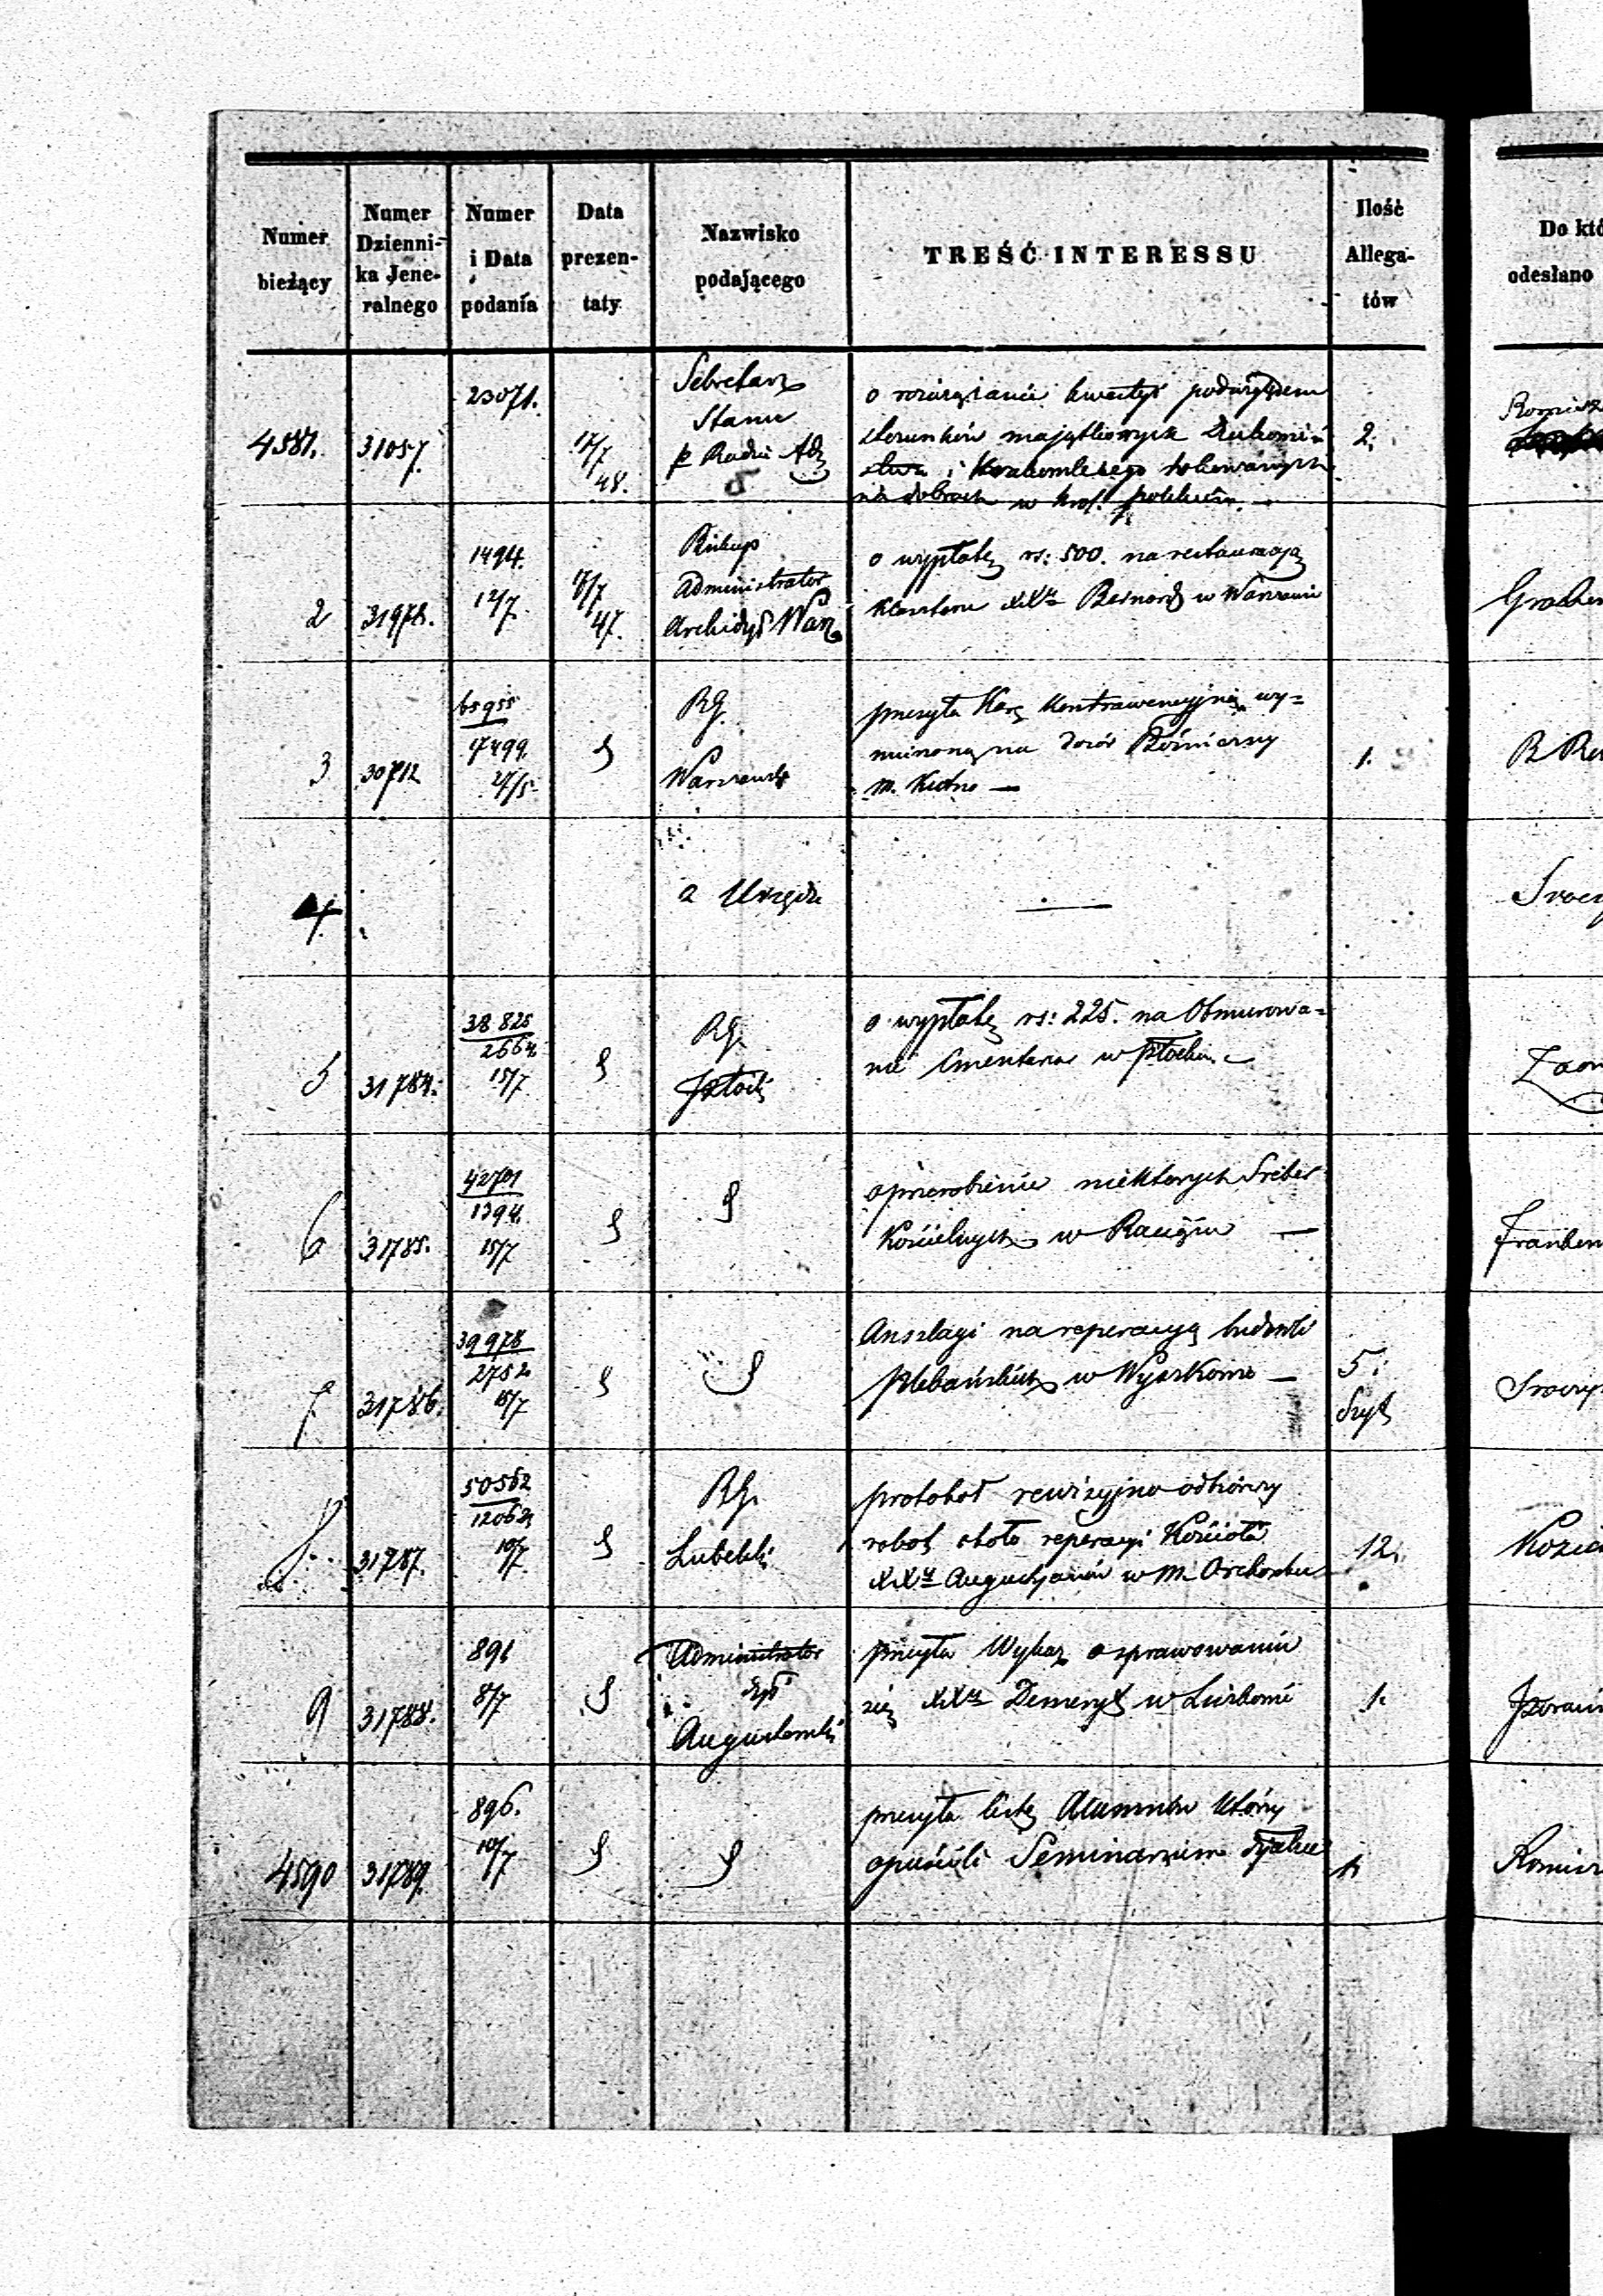 Numer bieżący
Numer Dzienni-ka Jene-ralnego
Numer i Data podania
Data prezen-taty
Nazwisko podającego
TREŚĆ INTERESSU
Ilość Allega-tów
Do któ
odesłano
4581.
31057.
23071.
17/7 48.
Sekretarz
Stanu
p. Radzie Adz
o rozwiązanie kwestyi pod względem
stosunków majątkowych
na dobrach w Król. polskiem.
2.
2
31978.
1494.
12/7.
17/7 47.
Biskup
Administrator
Archidye Warz
o wypłatę rs: 500. na restauracją
Klasztoru XXy Bernard w Warszawie
3
30712
65955
17499.
27/5.
RG.
Warszawsk
przesyła Karę Kontrawencyjną wy-
mierzoną na dozór Bóżniczny
m. Kutno —
1.
4
z Urzędu
5
31784.
38825
2664
15/7
RG.
Płocki
o wypłatę rs: 225. na Obmurowa-
nie Cmentarza w Płocku.
6
31785.
42701
1394.
15/7
o przerobienie niektorych Sreber
Kościelnych w Raciążu —
7
31786.
39978
2752
15/7
Anszlagi na reperacyą budowli
plebańskich w Wyszkowie —
5.
Szyt
8.
31787.
50562
12062
10/7.
RG.
Lubelski
protokoł rewizyjno odbiorczy
robot około reperacyi Kościoła
XXy Augustyanów w m. Orchowku
12.
9
31788.
891
8/7
Administrator
dye
Augustowski
przesyła Wykaz o sprawowaniu
się XXy Demeryt w Liszkowie
1.
4590
31789.
896.
10/7
przesyła listę Alumnów którzy
opuścili Seminarium
1.